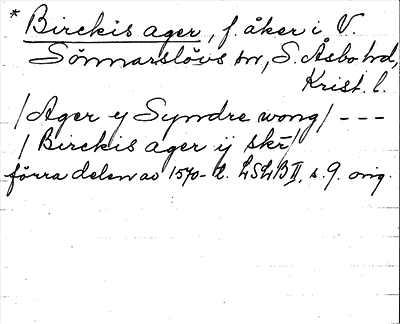 * Birckis ager, f. åker i V.
Sönnarslövs sn, S. Åsbo hd,
Krist. l.
/Ager ej Syndre wong/ ---
/ Birckis ager ij skr/
förra delen av 1570-t. LSLB II, s. 9. orig.